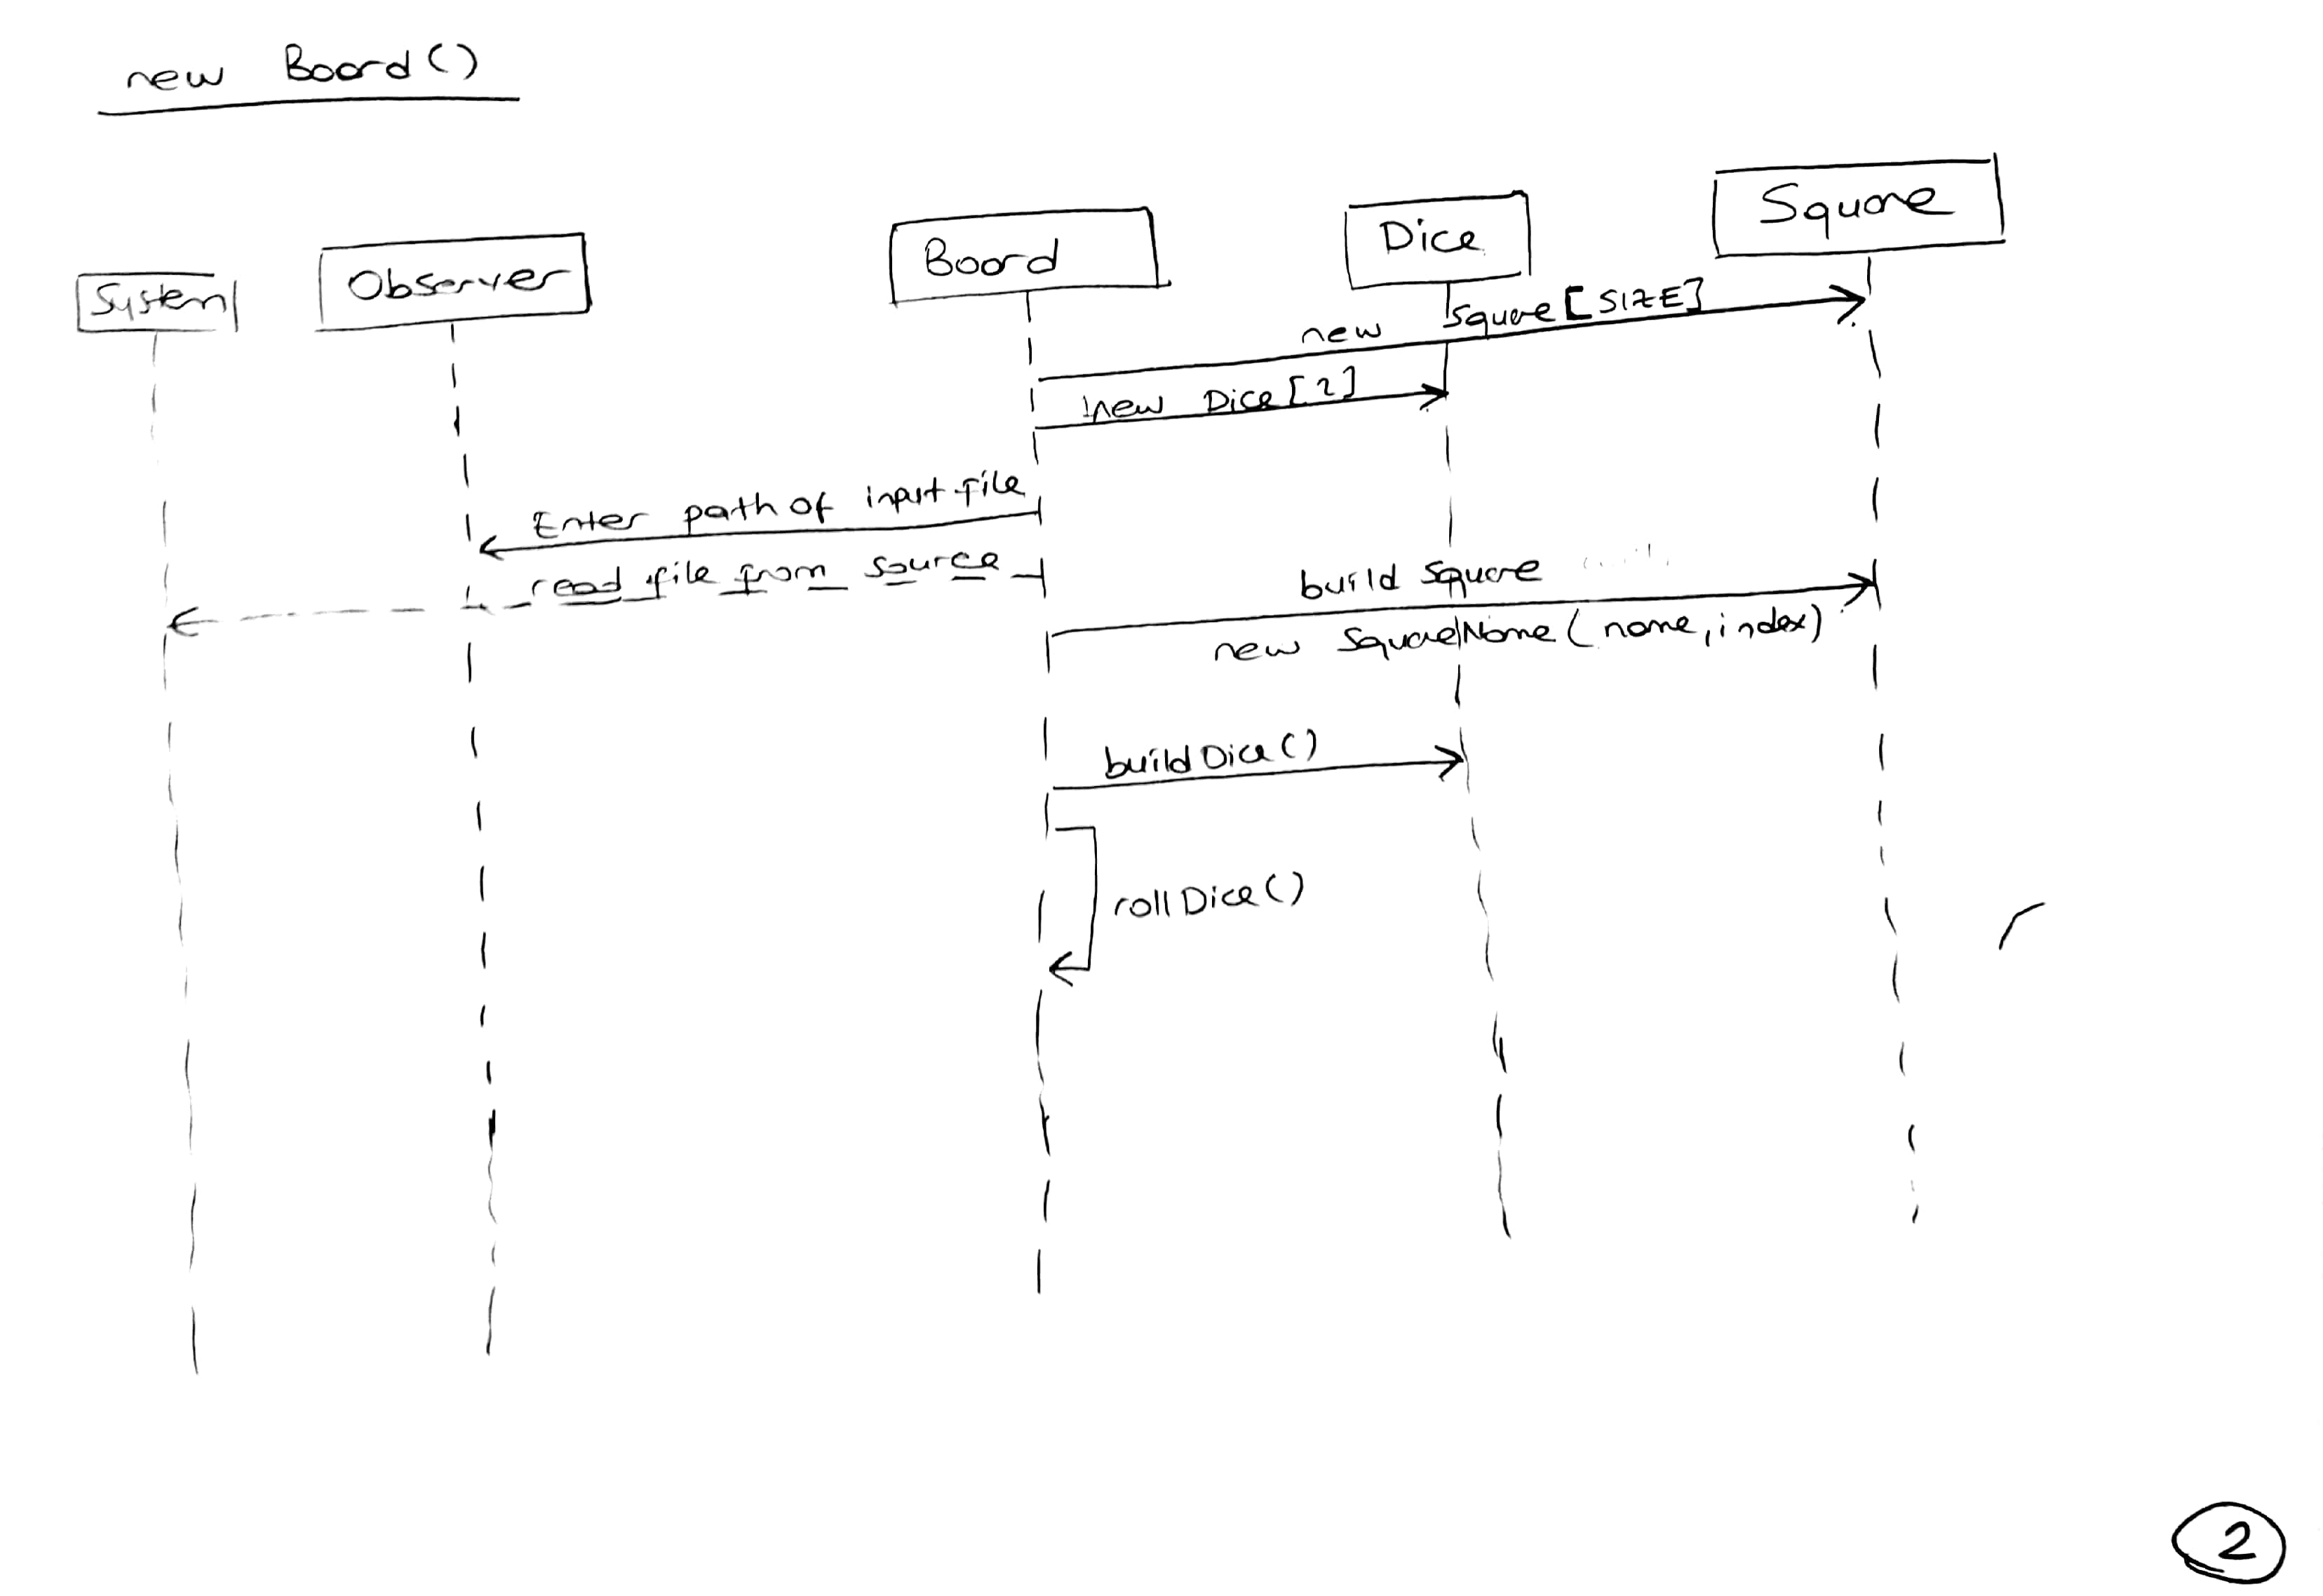 new Board()
System
Observer
Board
Dice
Square
new Square[SIZE]
new Dice[2]
Enter path of input file
read file from source
build square
new SquareName(name, index)
buildDice()
rollDice()
2